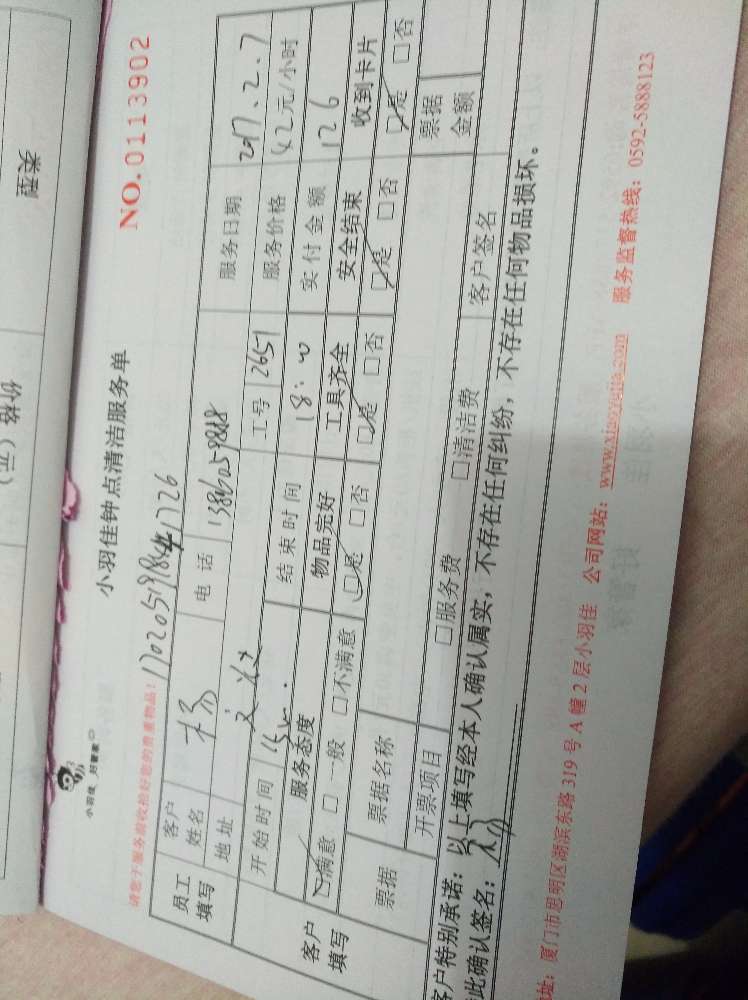 薛荣
价格（元）
小羽佳钟点清洁服务单
NO.0113902
小羽佳 好管家
请您于服务前收拾好您的贵重物品！
员工填写 客户姓名 杨 电话 服务日期 2017.2.7
地址 工号 2651 服务价格 42元/小时
开始时间 15:00 结束时间 18:00 实付金额 126
客户填写 服务态度 物品完好 工具齐全 安全结束 收到卡片
☑满意 □一般 □不满意 ☑是 □否 ☑是 □否 ☑是 □否 ☑是 □否
票据 票据名称 票据金额
开票项目 □服务费 □清洁费 客户签名
客户特别承诺：以上填写经本人确认属实，不存在任何纠纷，不存在任何物品损坏。
此确认签名：
址：厦门市思明区湖滨东路319号A幢2层小羽佳 公司网站：www.xiaoyujia.com 服务监督热线：0592-5888123